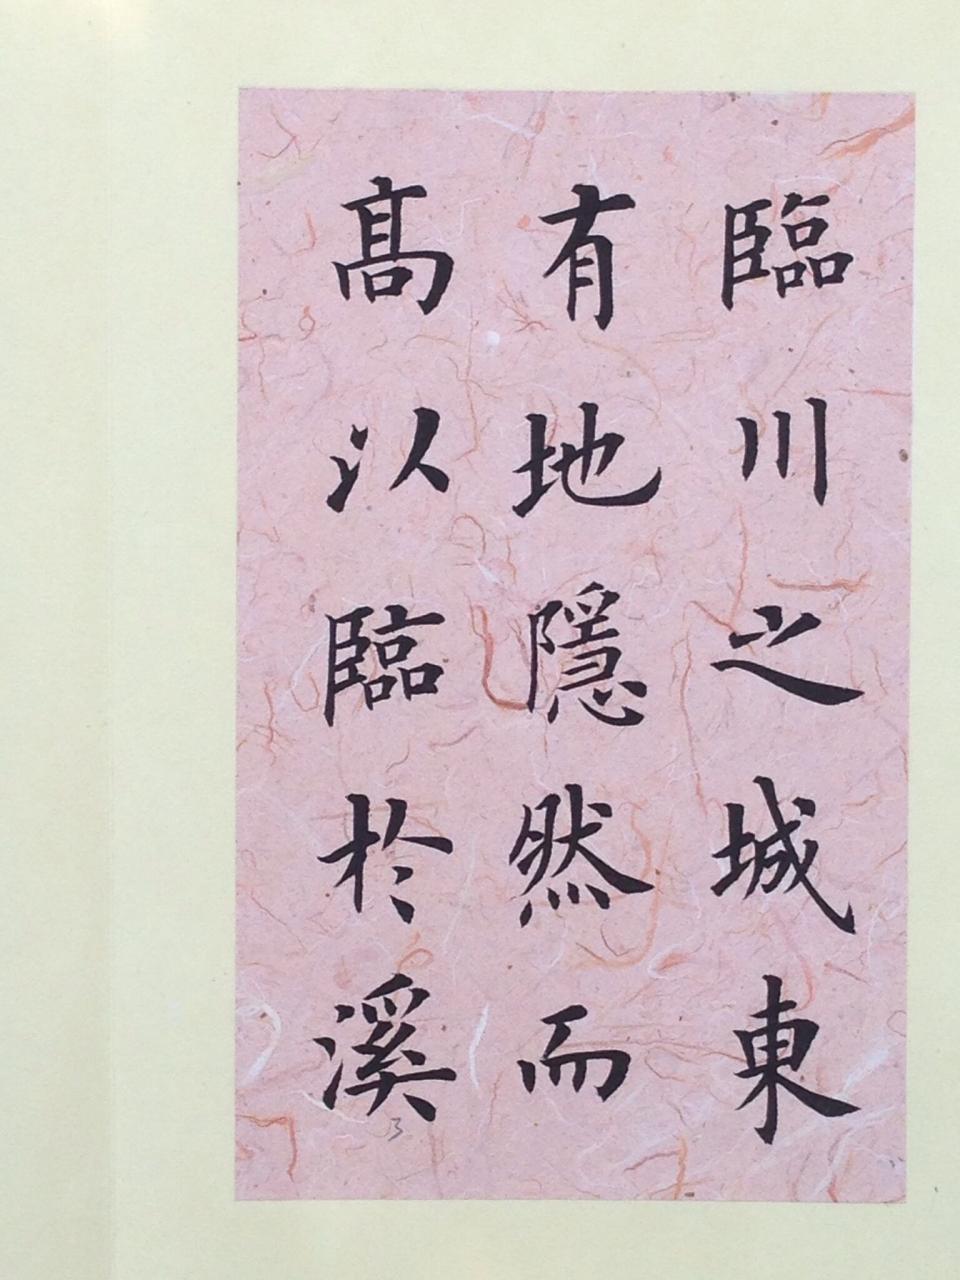 臨川之城東
有地隱然而
髙以臨於溪
3